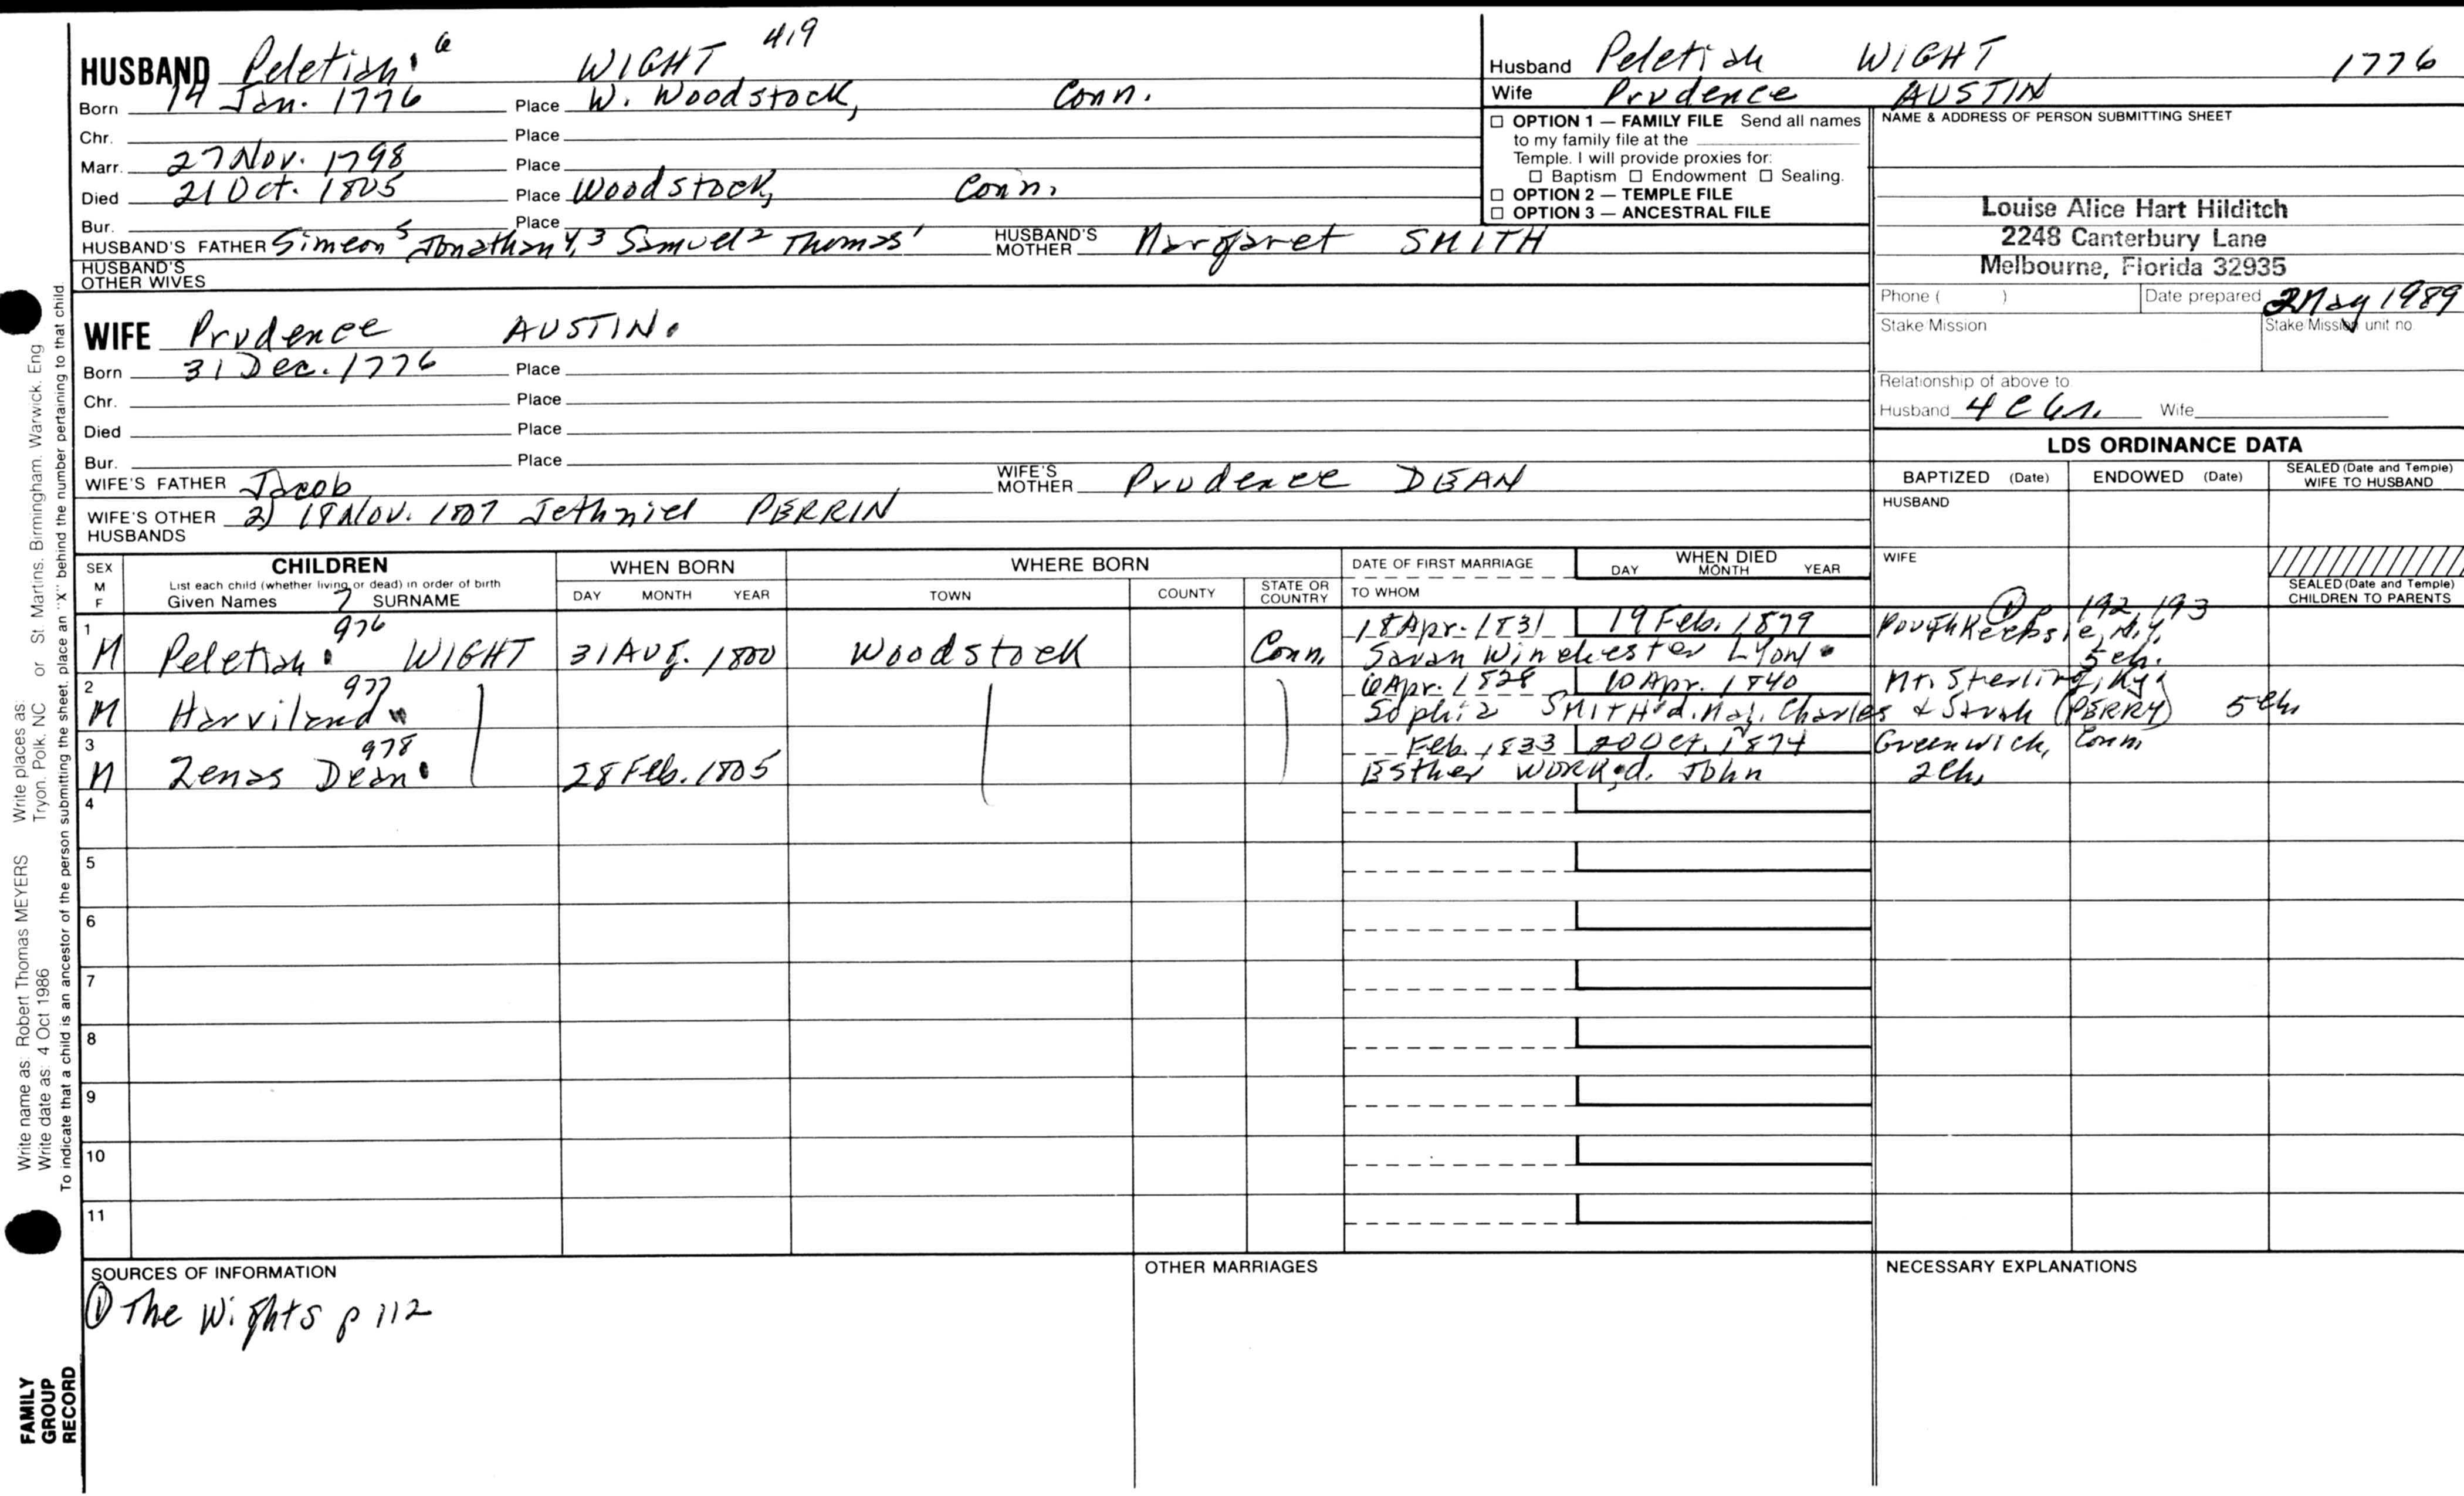 HUSBAND Peletiah 6 WIGHT 419
Born 14 Jan. 1776 Place W. Woodstock, Conn.
Chr. Place
Marr. 27 Nov. 1798 Place
Died 21 Oct. 1805 Place Woodstock, Conn.
Bur. Place
HUSBAND'S FATHER Simeon 5 Jonathan 4,3 Samuel 2 Thomas 1 HUSBAND'S MOTHER Margaret SMITH
HUSBAND'S OTHER WIVES
WIFE Prudence AUSTIN.
Born 31 Dec. 1776 Place
Chr. Place
Died Place
Bur. Place
WIFE'S FATHER Jacob WIFE'S MOTHER Prudence DEAN
WIFE'S OTHER HUSBANDS 2) 18 Nov. 1807 Jethniel PERRIN
Husband Peletiah WIGHT 1776
Wife Prudence AUSTIN
☐ OPTION 1 — FAMILY FILE Send all names
to my family file at the
Temple. I will provide proxies for:
☐ Baptism ☐ Endowment ☐ Sealing.
☐ OPTION 2 — TEMPLE FILE
☐ OPTION 3 — ANCESTRAL FILE
NAME & ADDRESS OF PERSON SUBMITTING SHEET
Louise Alice Hart Hilditch
2248 Canterbury Lane
Melbourne, Florida 32935
Phone ( ) Date prepared 2 May 1989
Stake Mission Stake Mission unit no.
Relationship of above to
Husband 4 C 6r. Wife
LDS ORDINANCE DATA
BAPTIZED (Date) ENDOWED (Date) SEALED (Date and Temple) WIFE TO HUSBAND
HUSBAND
WIFE
SEALED (Date and Temple) CHILDREN TO PARENTS
SEX M F
CHILDREN
List each child (whether living or dead) in order of birth
Given Names 7 SURNAME
WHEN BORN
DAY MONTH YEAR
WHERE BORN
TOWN COUNTY STATE OR COUNTRY
DATE OF FIRST MARRIAGE
TO WHOM
WHEN DIED
DAY MONTH YEAR
1 976 18 Apr. 1831 19 Feb. 1879 Poughkeepsie, N.Y. ① p 192, 193
M Peletiah WIGHT 31 Aug. 1800 Woodstock Conn. Sarah Winchester LYON 5 ch.
2 977 6 Apr. 1828 10 Apr. 1840 Mt. Sterling, Ky.
M Harviland Sophia SMITH d. Maj. Charles & Sarah (PERRY) 5 ch.
3 978 Feb. 1833 20 Oct. 1874 Greenwich, Conn.
M Zenas Dean 28 Feb. 1805 Esther WORK d. John 2 ch.
4
5
6
7
8
9
10
11
SOURCES OF INFORMATION
① The Wights p 112
OTHER MARRIAGES
NECESSARY EXPLANATIONS
Write name as: Robert Thomas MEYERS Write places as:
Write date as: 4 Oct 1986 Tryon, Polk, NC or St. Martins, Birmingham, Warwick, Eng
To indicate that a child is an ancestor of the person submitting the sheet, place an "X" behind the number pertaining to that child.
FAMILY
GROUP
RECORD